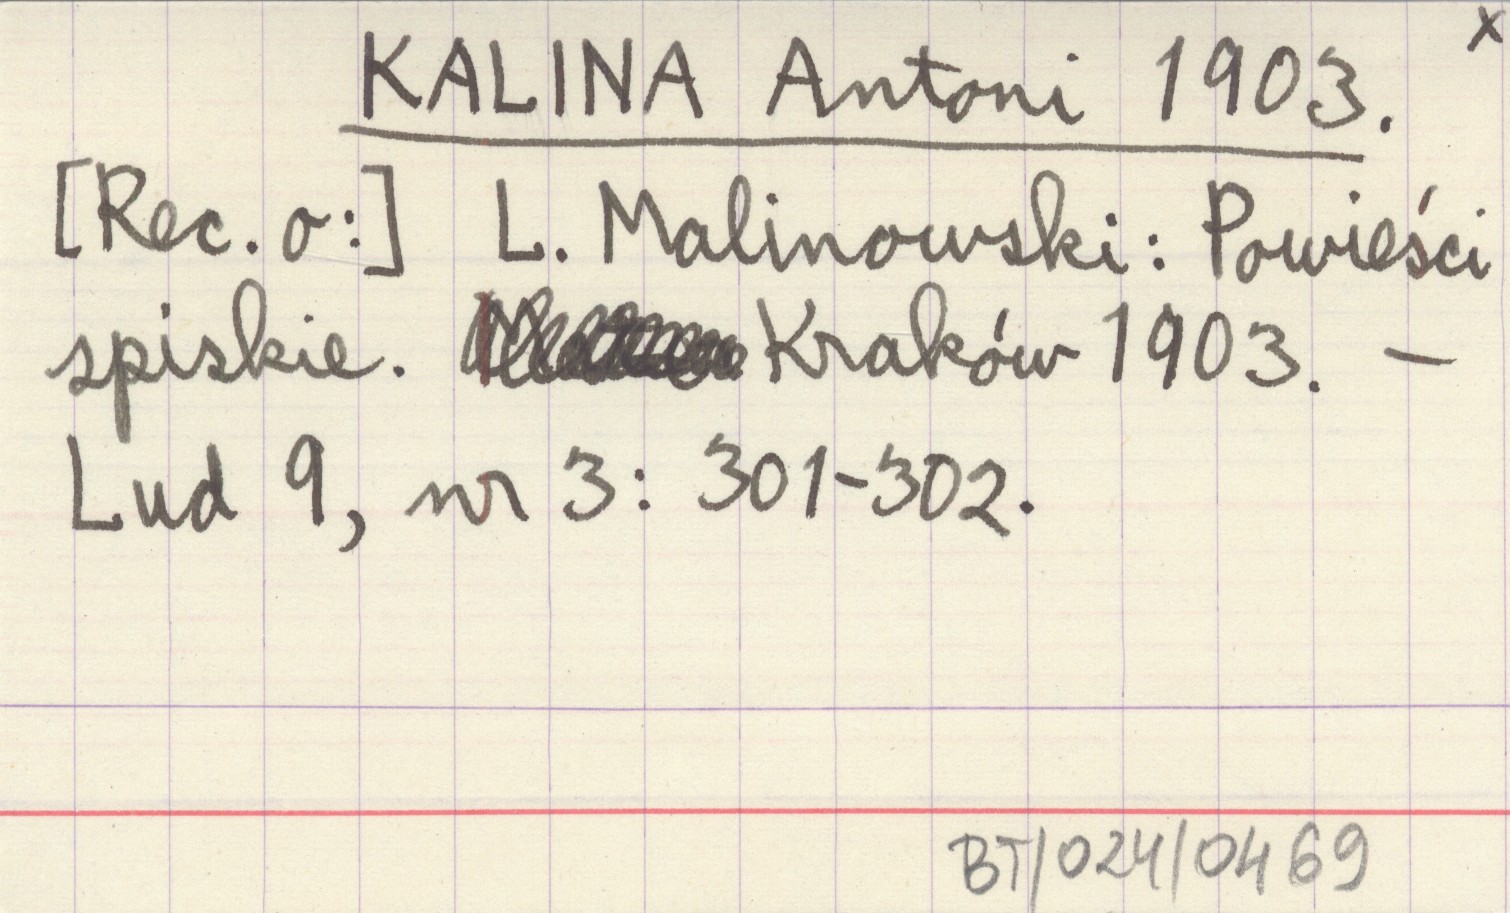 x
KALINA Antoni 1903.
[Rec. o:] L. Malinowski: Powieści
spiskie. Kraków 1903. —
Lud 9, nr 3: 301-302.
BT/024/0469